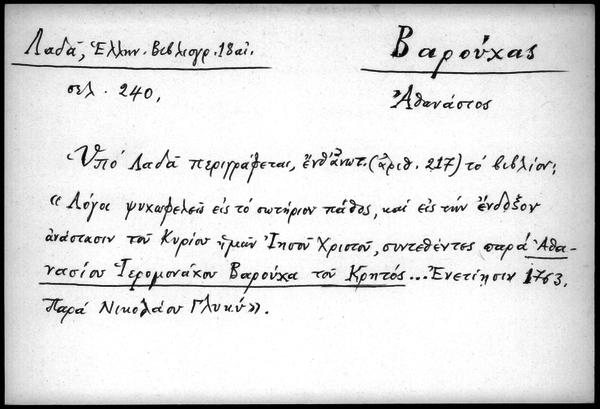 Λαδᾶ, Ἑλλην. Βιβλιογρ. 18 αἰ.
Βαρούχας
σελ. 240.
Ἀθανάσιος
Ὑπό Λαδᾶ περιγράφεται, ἔνθ' ἀνωτ. (ἀριθ. 217) τό βιβλίον:
« Λόγοι ψυχωφελεῖς εἰς τό σωτήριον πάθος, καί εἰς τήν ἔνδοξον
ἀνάστασιν τοῦ Κυρίου ἡμῶν Ἰησοῦ Χριστοῦ, συντεθέντες παρά Ἀθα-
νασίου Ἱερομονάχου Βαρούχα τοῦ Κρητός... Ἐνετίησιν 1763.
Παρά Νικολάου Γλυκύ».